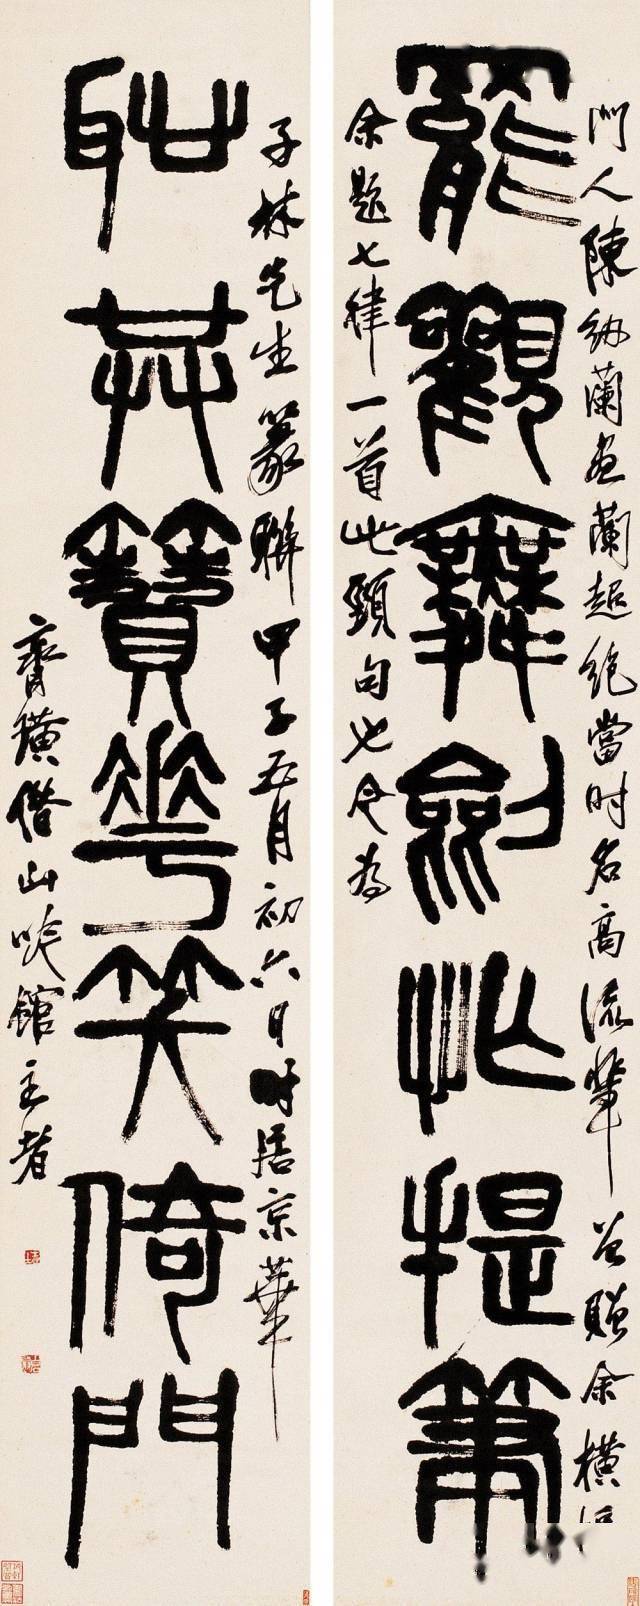 門人陳紉蘭畫蘭超絕當時名高流輩贈余橫
罷觀舞劍忙提筆
余題七律一首此頸句也今為
子林先生篆聯甲子五月初六日時居京華
恥共簪花笑倚門
齊璜借山吟館主者